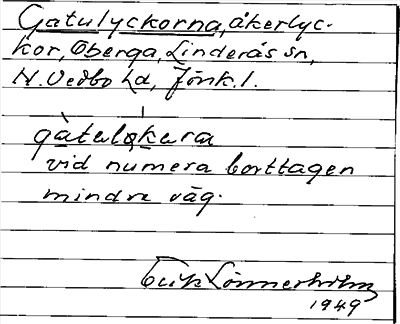 Gatulyckorna, åkerlyc-
kor, Oberga, Linderås sn,
N. Vedbo hd, Jönk. l.
gàtuləkəra
vid numera borttagen
mindre väg.
Erik Lönnerholm
1949